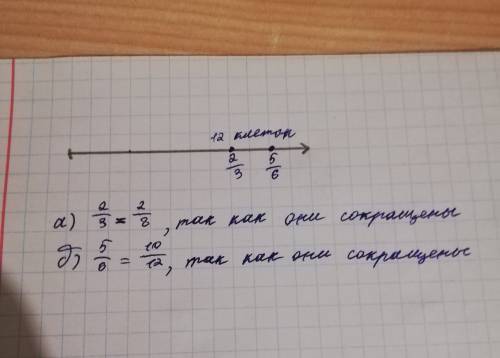 12 клеток
2/3 5/6
а) 2/3 = 2/8, так как они сокращены
б) 5/6 = 10/12, так как они сокращены